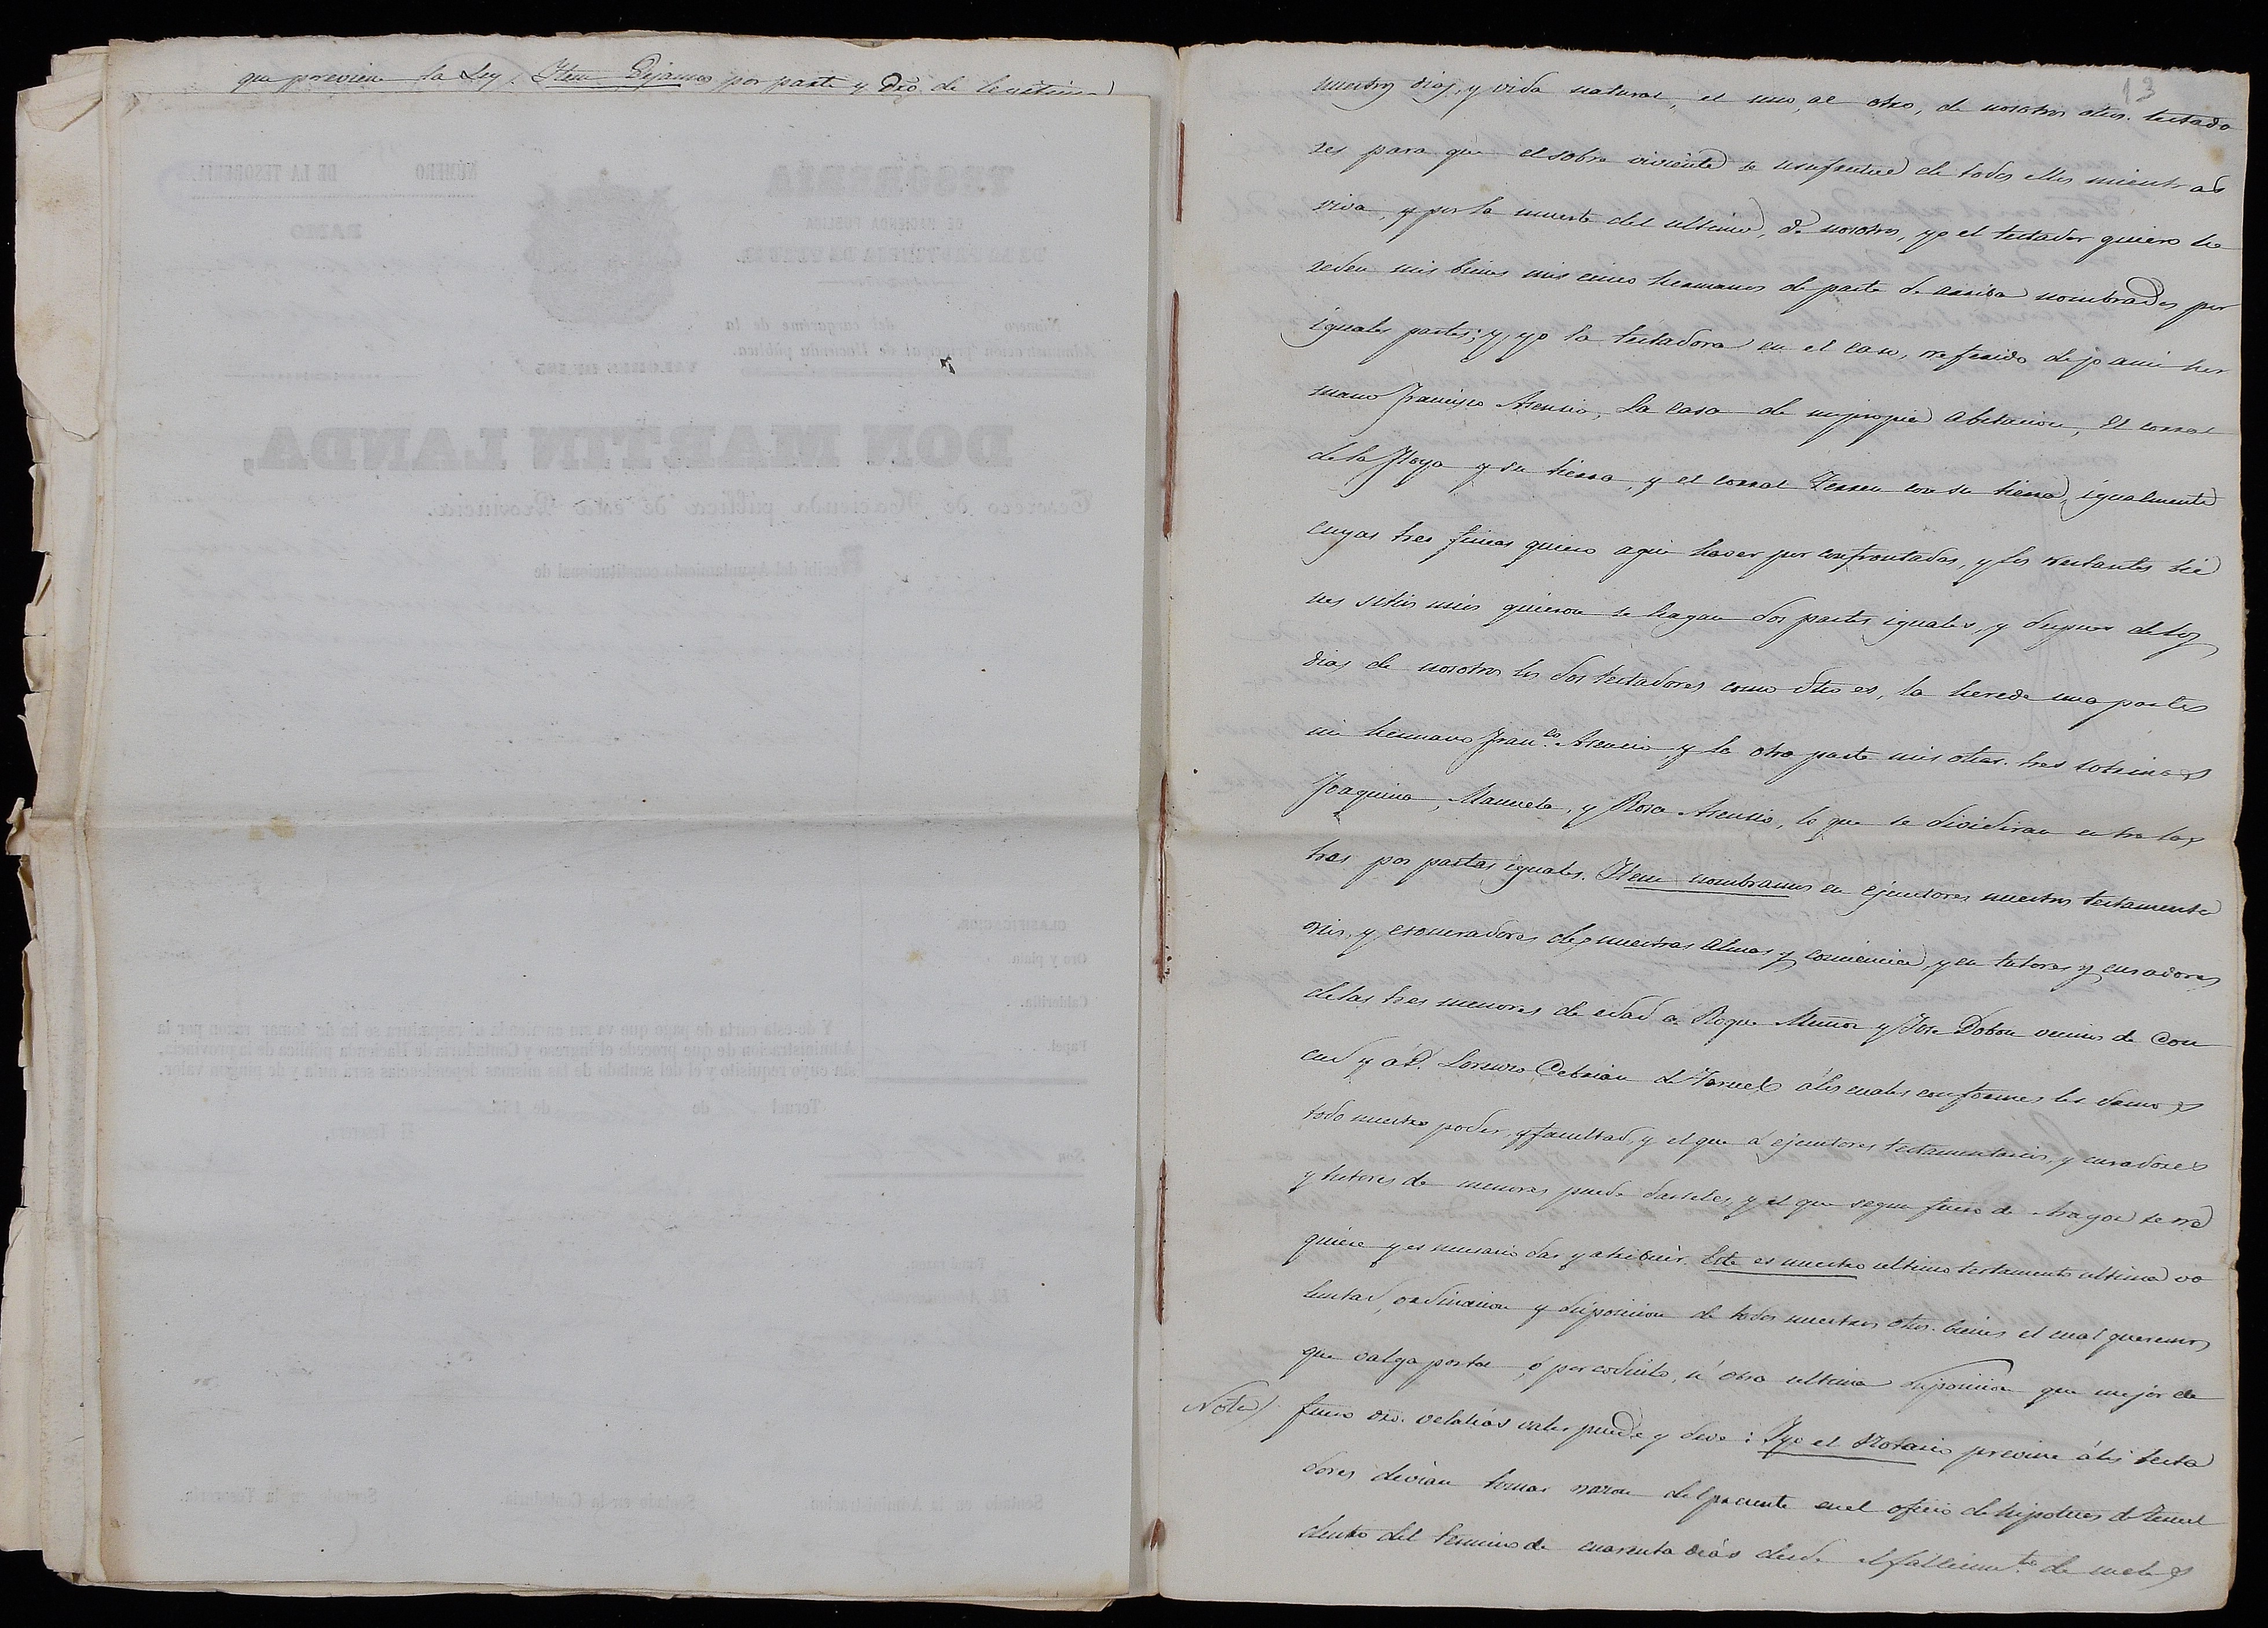 que previene la Ley. Item Dejamos por parte y Dro. de legitima
NÚMERO DE LA TESORERÍA
TESORERÍA
DE HACIENDA PÚBLICA
DE LA PROVINCIA DE TERUEL.
RAMO
Número del cargaréme de la
Administracion principal de Hacienda pública.
DON MARTIN LANDA,
Tesorero de Hacienda pública de esta Provincia.
Recibí del Ayuntamiento constitucional de
CLASIFICACION.
Oro y plata.
Calderilla.
Papel.
Y de esta carta de pago que va sin enmienda ni raspadura se ha de tomar razon por la
Administracion de que procede el ingreso y Contaduría de Hacienda pública de la provincia,
sin cuyo requisito y el del sentado de las mismas dependencias será nula y de ningun valor.
Teruel de de 185
El Tesorero,
Son
Sentado en la Administracion. Sentado en la Contaduría. Sentado en la Tesorería.
13
nuestros dias, y vida natural, el uno, al otro, de nosotros dhos. testado
res para que el sobre viviente se usufructue de todos ellos mientras
viva, y por la muerte del ultimo, de nosotros, yo el testador quiero he
reden mis bienes mis cinco hermanos de parte de arriba nombrados por
iguales partes; y, yo la testadora en el caso, rreferido dejo a mi her
mano Francisco Asensio, la casa de mi propia abitacion, el corral
de la Hoya y su tierra, y el corral con su tierra, igualmente
cuyas tres fincas quiero aqui haver por confrontadas, y los restantes bie
nes sitios mios quieron se hagan dos partes iguales, y despues de los
dias de nosotros los dos testadores como dho es, la herede una parte
mi hermano Fran.co Asensio y la otra parte mis otras tres sobrinas
Joaquina, Manuela, y Rosa Asensio, lo que se dividiran entre las
tres por partes iguales. Item nombramos en ejecutores nuestros testamenta
rios, y esoneradores de nuestras Almas y conciencia, y en tutores y curadores
de las tres menores de edad a Roque Muñoz y Jose Dobon vecinos de Con
cud y á D. Lorenzo Cebrian de Teruel á los cuales conformes les damos
todo nuestro poder, y facultad, y el que á ejecutores testamentarios, y curadores
y tutores de menores puede darseles, y el que segun fuero de Aragon se rre
quiere y es necesario dar y atribuir. Este es nuestro ultimo testamento ultima vo
luntad, ordinacion y disposicion de todos nuestros dhos. bienes el cual queremos
que valga por tal, ó por codicilo, ú otra ultima disposicion que mejor de
Nota) fuero dro. valer puede y deve: Y yo el Notario previne á los testa
dores devian tomar razon del presente en el oficio de hipotecas de Teruel
dentro del termino de cuarenta dias desde el fallecim.to de